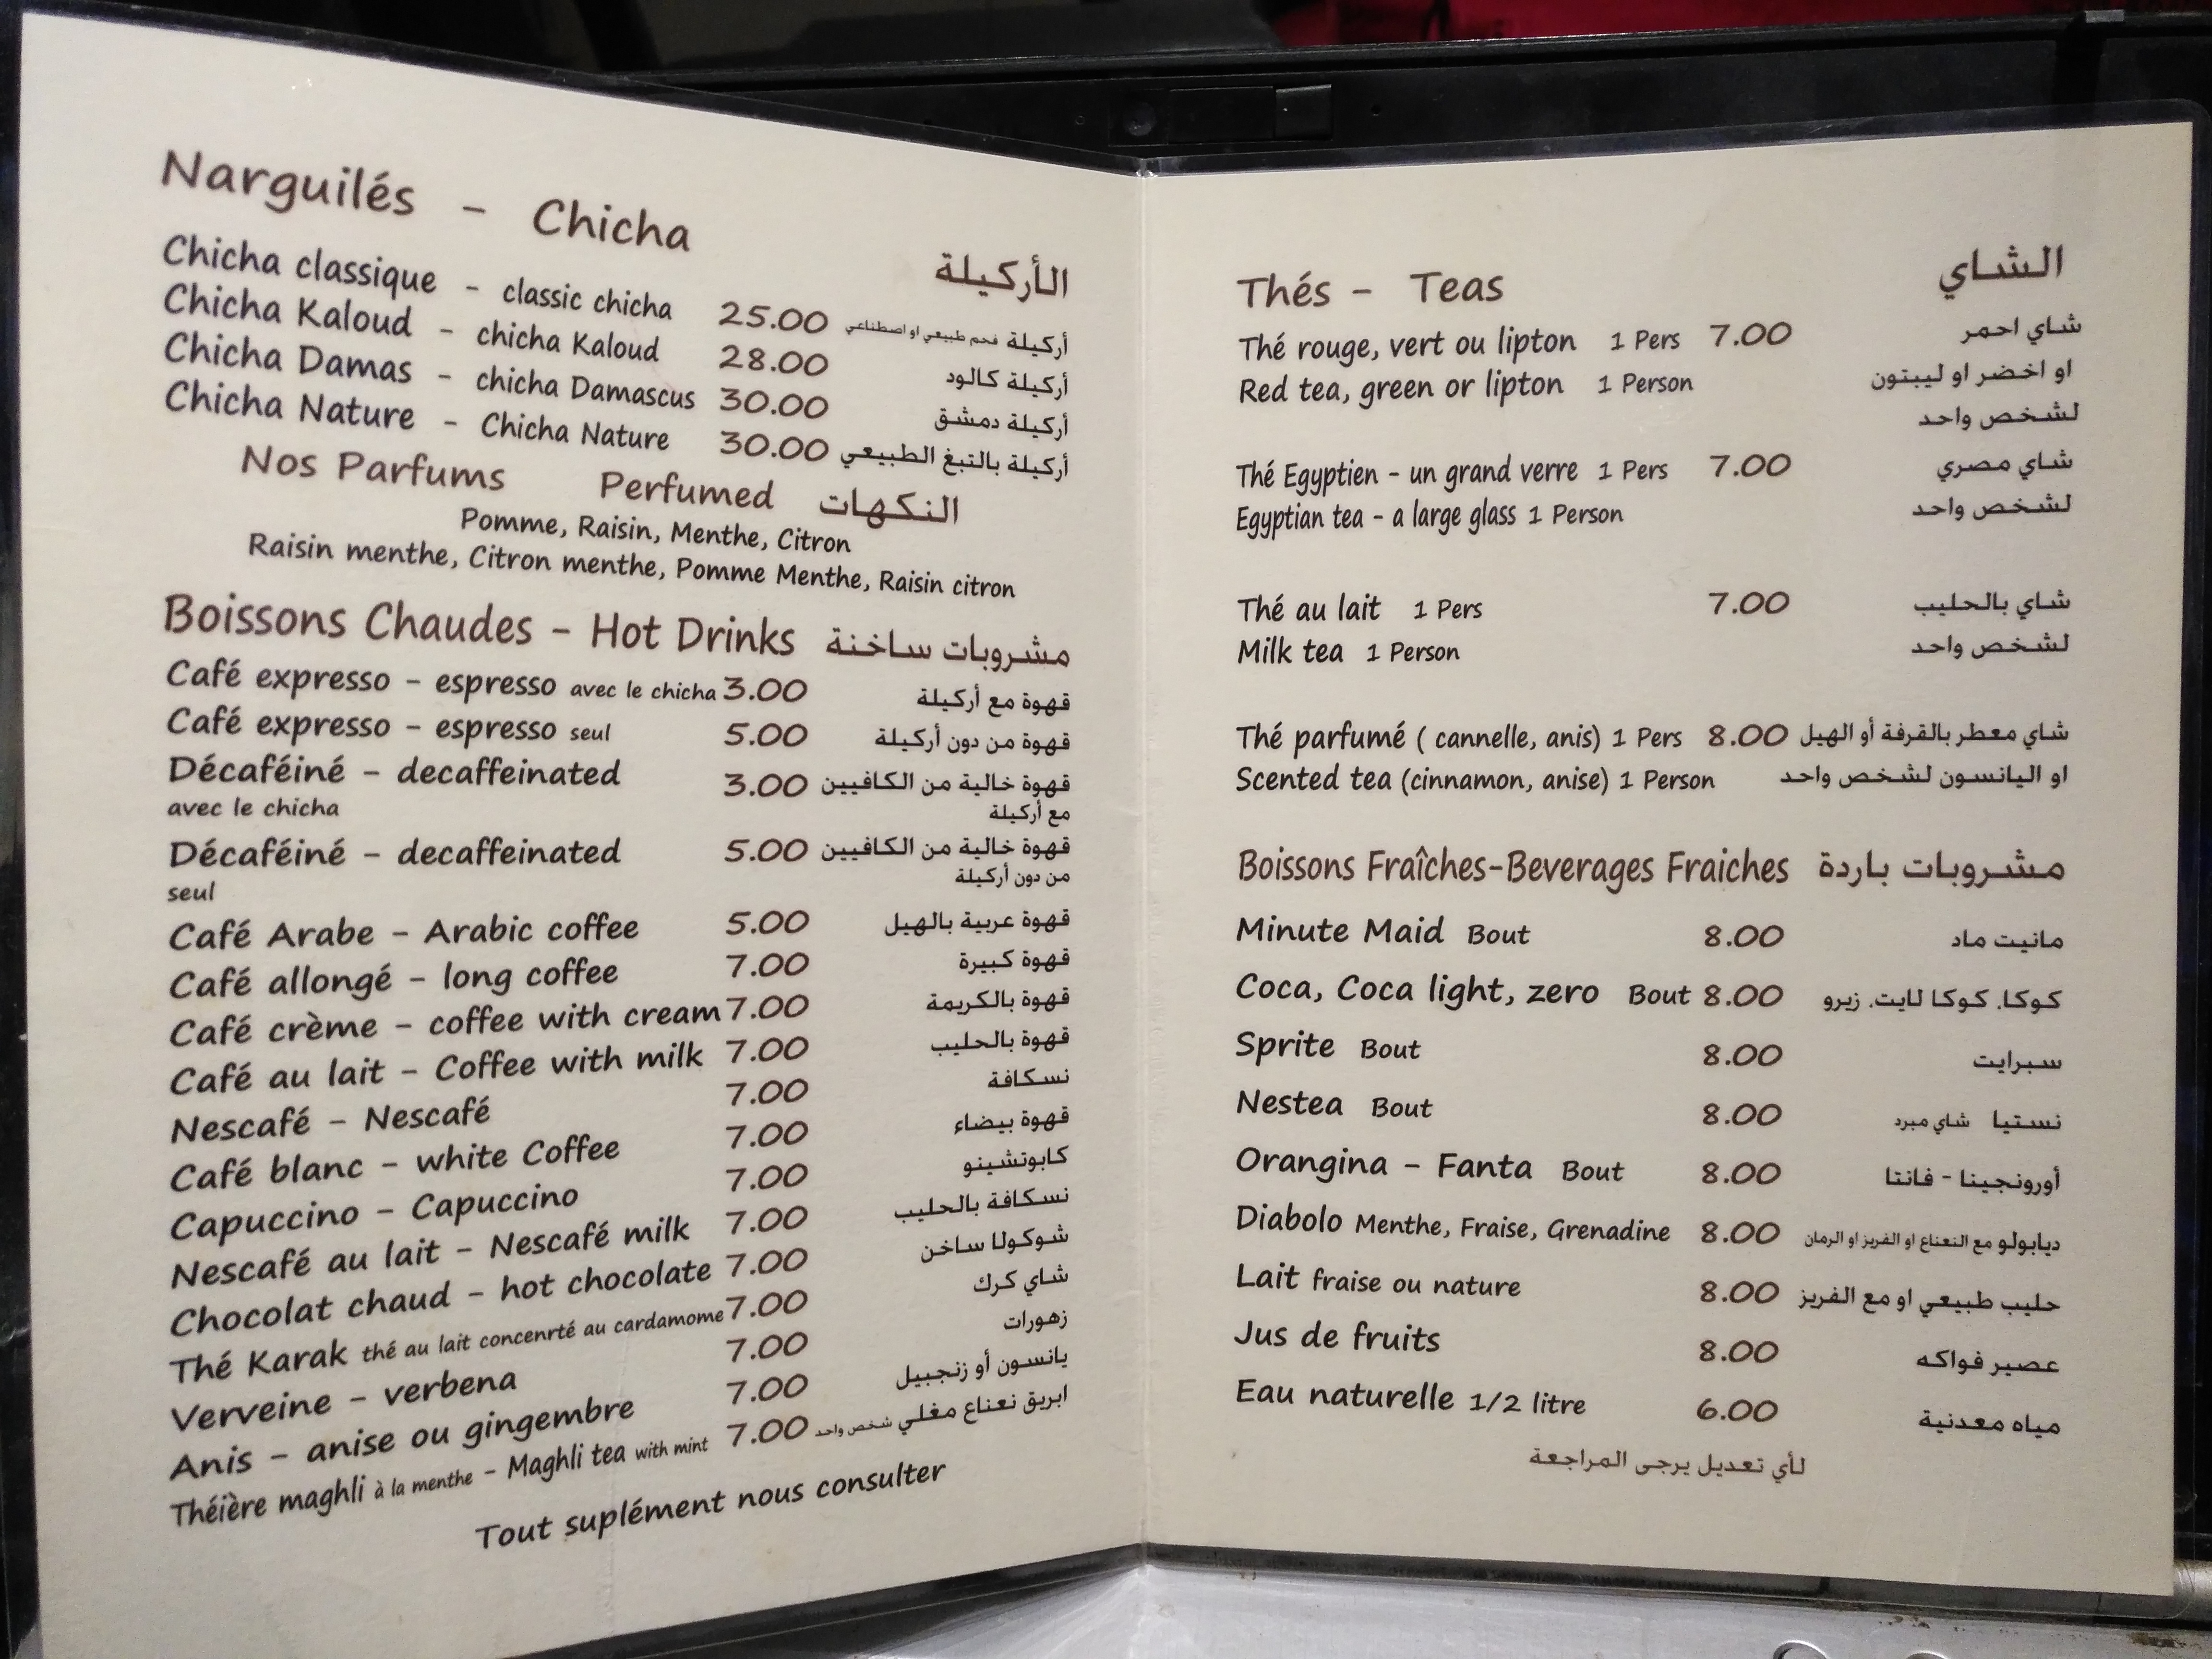 Narguilés - Chicha الأركيلة
Chicha classique - classic chicha 25.00 أركيلة فحم طبيعي او اصطناعي
Chicha Kaloud - chicha Kaloud 28.00 أركيلة كالود
Chicha Damas - chicha Damascus 30.00 أركيلة دمشق
Chicha Nature - Chicha Nature 30.00 أركيلة بالتبغ الطبيعي
Nos Parfums Perfumed النكهات
Pomme, Raisin, Menthe, Citron
Raisin menthe, Citron menthe, Pomme Menthe, Raisin citron
Boissons Chaudes - Hot Drinks مشروبات ساخنة
Café expresso - espresso avec le chicha 3.00 قهوة مع أركيلة
Café expresso - espresso seul 5.00 قهوة من دون أركيلة
Décaféiné - decaffeinated 3.00 قهوة خالية من الكافيين
avec le chicha مع أركيلة
Décaféiné - decaffeinated 5.00 قهوة خالية من الكافيين
seul من دون أركيلة
Café Arabe - Arabic coffee 5.00 قهوة عربية بالهيل
Café allongé - long coffee 7.00 قهوة كبيرة
Café crème - coffee with cream 7.00 قهوة بالكريمة
Café au lait - Coffee with milk 7.00 قهوة بالحليب
Nescafé - Nescafé 7.00 نسكافة
Café blanc - white Coffee 7.00 قهوة بيضاء
Capuccino - Capuccino 7.00 كابوتشينو
Nescafé au lait - Nescafé milk 7.00 نسكافة بالحليب
Chocolat chaud - hot chocolate 7.00 شوكولا ساخن
Thé Karak thé au lait concenrté au cardamome 7.00 شاي كرك
Verveine - verbena 7.00 زهورات
Anis - anise ou gingembre 7.00 يانسون أو زنجبيل
Théière maghli à la menthe - Maghli tea with mint 7.00 ابريق نعناع مغلي شخص واحد
Tout suplément nous consulter
Thés - Teas الشاي
Thé rouge, vert ou lipton 1 Pers 7.00 شاي احمر
Red tea, green or lipton 1 Person او اخضر او ليبتون
لشخص واحد
Thé Egyptien - un grand verre 1 Pers 7.00 شاي مصري
Egyptian tea - a large glass 1 Person لشخص واحد
Thé au lait 1 Pers 7.00 شاي بالحليب
Milk tea 1 Person لشخص واحد
Thé parfumé ( cannelle, anis) 1 Pers 8.00 شاي معطر بالقرفة أو الهيل
Scented tea (cinnamon, anise) 1 Person او اليانسون لشخص واحد
Boissons Fraîches-Beverages Fraiches مشروبات باردة
Minute Maid Bout 8.00 مانيت ماد
Coca, Coca light, zero Bout 8.00 كوكا. كوكا لايت. زيرو
Sprite Bout 8.00 سبرايت
Nestea Bout 8.00 نستيا شاي مبرد
Orangina - Fanta Bout 8.00 أورونجينا - فانتا
Diabolo Menthe, Fraise, Grenadine 8.00 ديابولو مع النعناع او الفريز او الرمان
Lait fraise ou nature 8.00 حليب طبيعي او مع الفريز
Jus de fruits 8.00 عصير فواكه
Eau naturelle 1/2 litre 6.00 مياه معدنية
لأي تعديل يرجى المراجعة